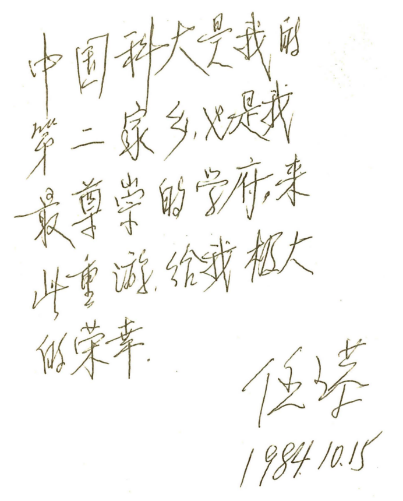 中国科大是我的
第二家乡,也是我
最尊崇的学府,来
此重游,给我极大
的荣幸.
任之恭
1984.10.15